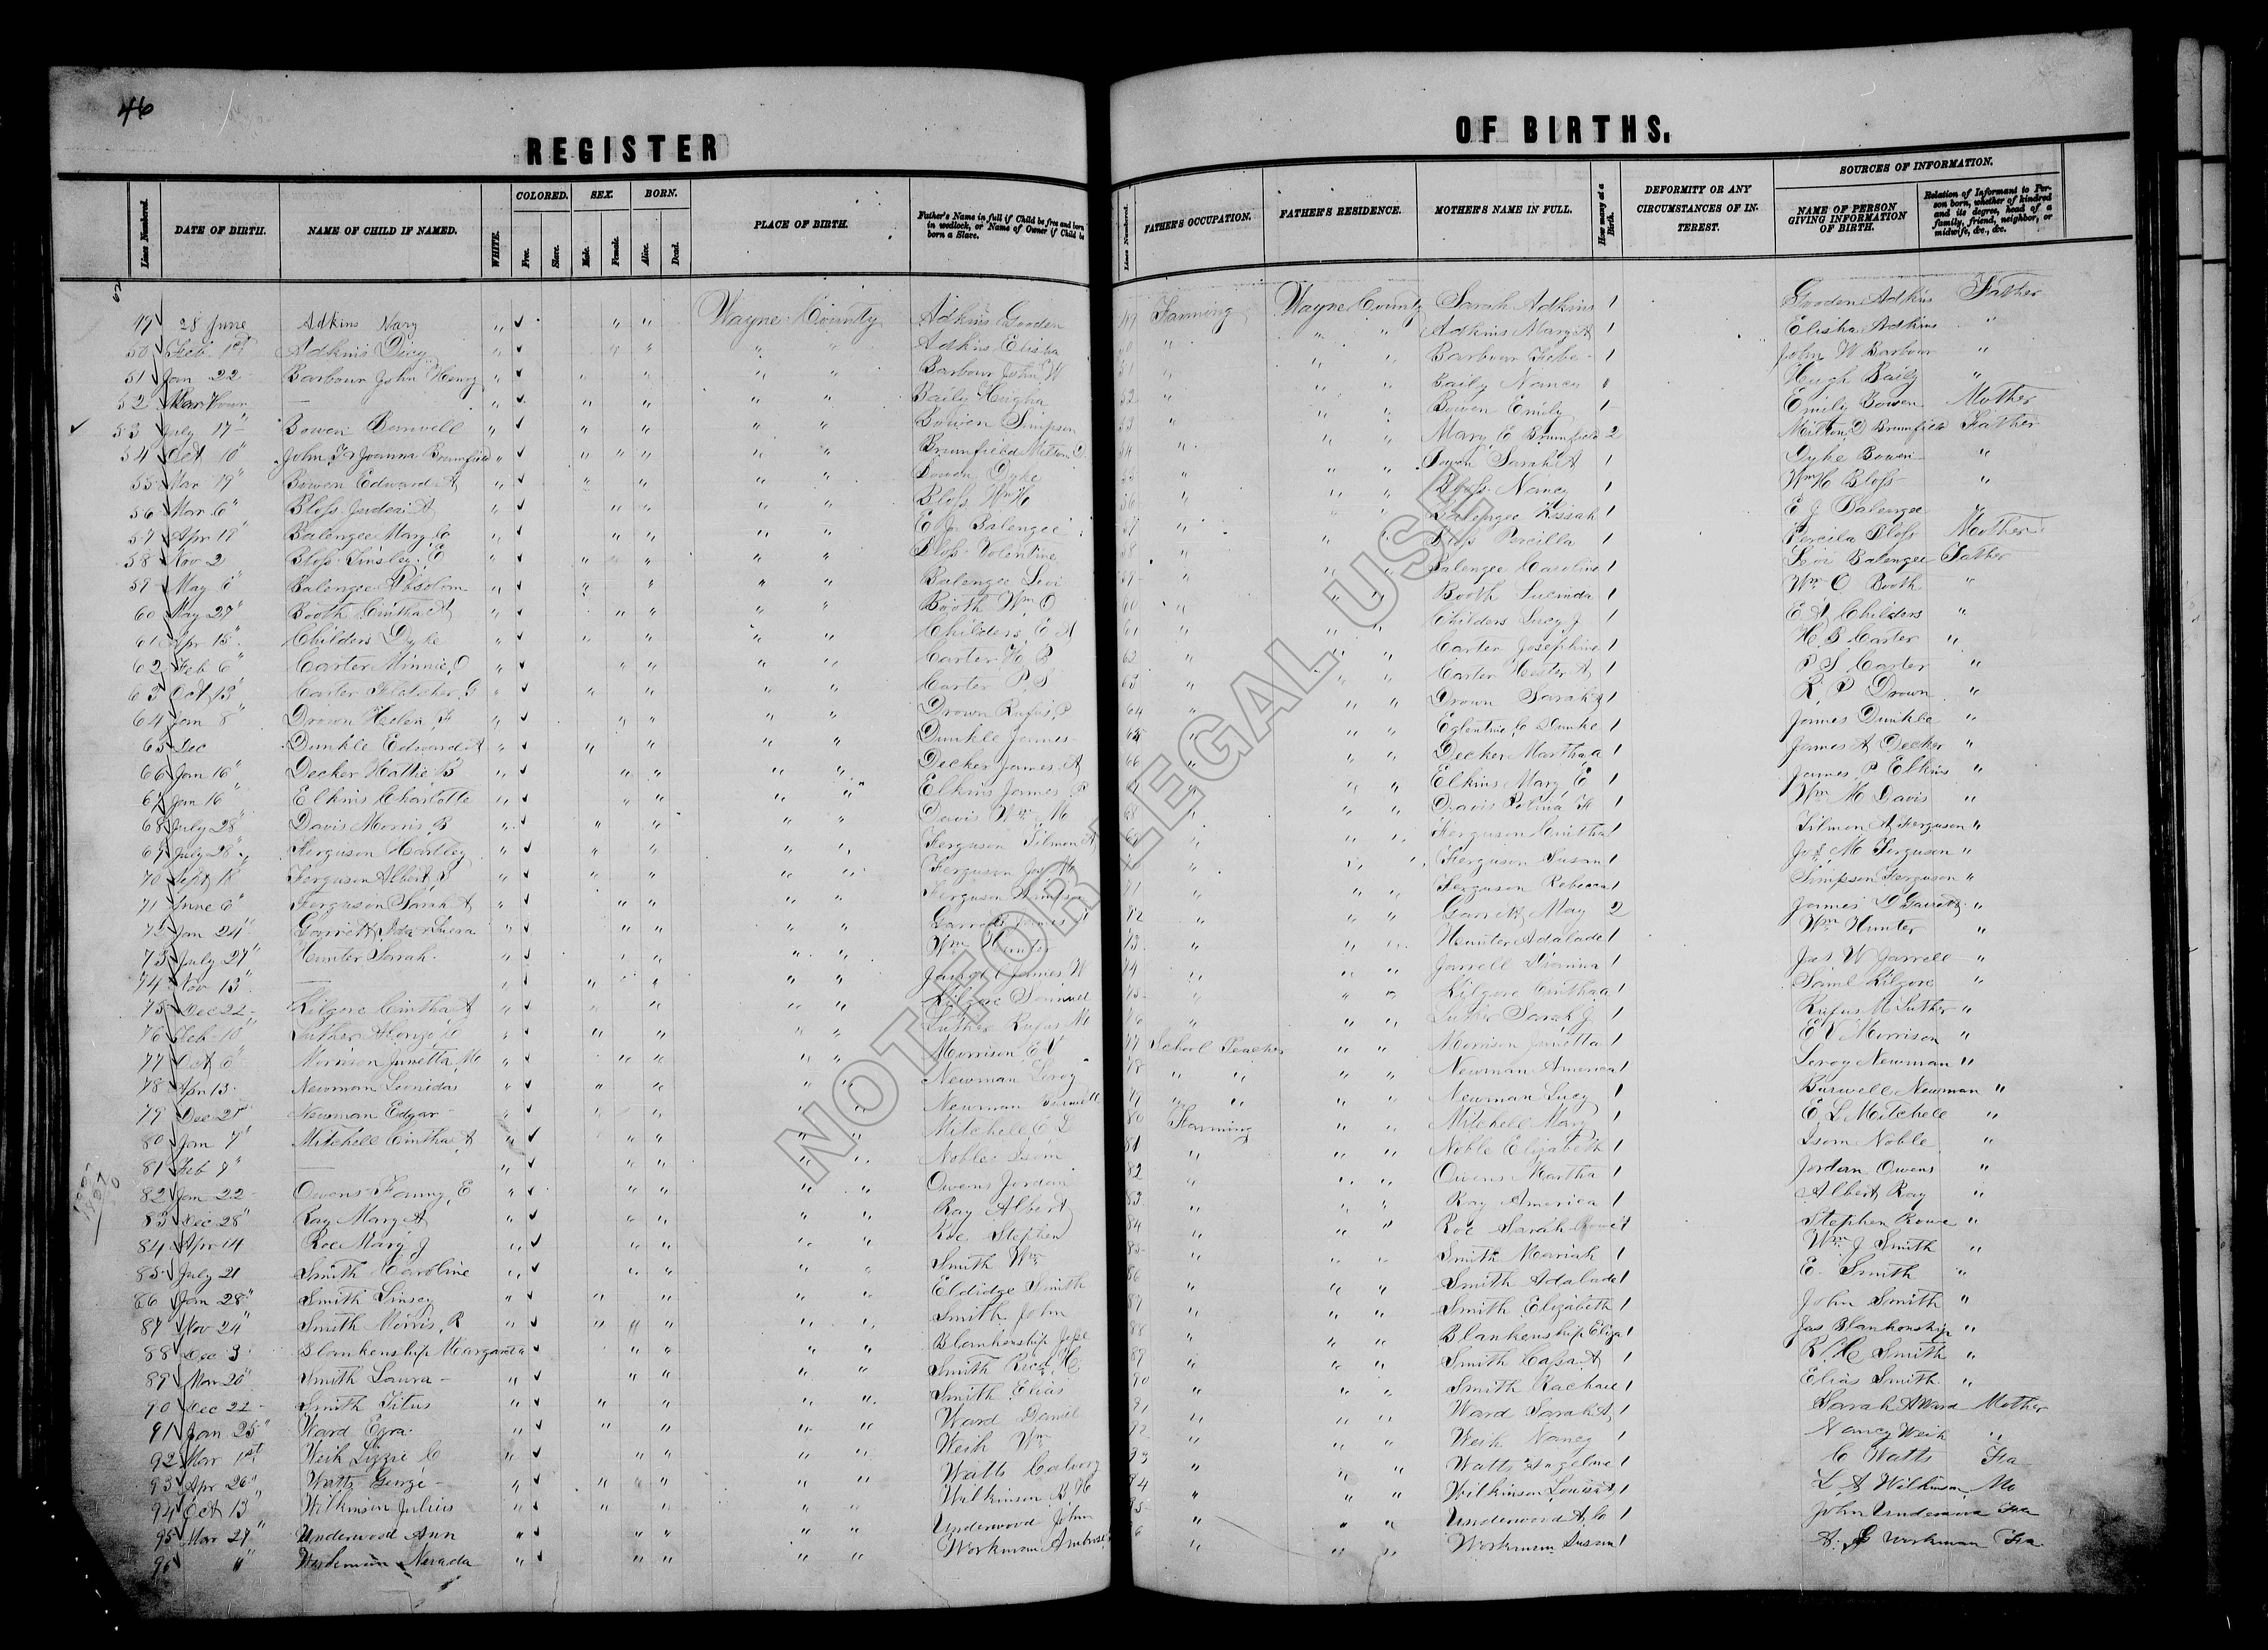 46
REGISTER
OF BIRTHS.
Lines Numbered. DATE OF BIRTH. NAME OF CHILD IF NAMED. WHITE. COLORED. Free. Slave. SEX. Male. Female. BORN. Alive. Dead. PLACE OF BIRTH. Father's Name in full if Child be free and born in wedlock, or Name of Owner if Child be born a Slave.
Lines Numbered. FATHER'S OCCUPATION. FATHER'S RESIDENCE. MOTHER'S NAME IN FULL. How many at a Birth. DEFORMITY OR ANY CIRCUMSTANCES OF INTEREST. SOURCES OF INFORMATION. NAME OF PERSON GIVING INFORMATION OF BIRTH. Relation of Informant to Person born, whether of kindred and its degree, head of a family, friend, neighbor, or midwife, &c., &c.
49 28 June Adkins Wayne County Adkins Gooden Farming Wayne County Sarah Adkins 1 Gooden Adkins Father
50 Feb 1st Adkins Dicy " " Adkins Elisha " " " Adkins Mary A 1 Elisha Adkins "
51 Jan 22 Barbour John Henry " " Barbour John W " " " Barbour 1 John W Barbour "
52 Mar " " Baily " " " Baily Nancy Hugh Baily "
53 July 17 Bowen " " Bowen Simpson " " " Bowen Emily 1 Emily Bowen Mother
54 Oct 10" John & Joanna Brumfield " " Brumfield Milton D " " " Mary E Brumfield 2 Milton D Brumfield Father
55 Mar 19" Bowen Edward A " " Bowen Dyke " " " Bowen Sarah A 1 Dyke Bowen "
56 Mar 6" Bloss A " " Bloss Wm H " " " Bloss Nancy 1 Wm H Bloss "
57 Apr 18 Balengee Mary C " " E J Balengee " " " Balengee 1 E J Balengee "
58 Nov 2 Bloss Linsley E " " Bloss Volentine " " " Bloss Percilla 1 Percila Bloss Mother
59 May 6" Balengee Absolom " " Balengee Levi " " " Balengee Caroline 1 Levi Balengee Father
60 May 27" Booth Cintha A " " Booth Wm O " " " Booth Lucinda 1 Wm O Booth "
61 Apr 15" Childers Dyke " " Childers E A " " " Childers Lucy J 1 E A Childers "
62 Feb 6" Carter Minnie O " " Carter H B " " " Carter Josephine 1 H B Carter "
63 Oct 13" Carter Fletcher G " " Carter P S " " " Carter Hester A 1 P S Carter "
64 Jan 8" Drown Helen F " " Drown Rufus P " " " Drown Sarah 1 R P Drown "
65 Dec Dunkle Edward A " " Dunkle James " " " Eglentine C Dunkle 1 James Dunkle "
66 Jan 16" Decker Hattie B " " Decker James A " " " Decker Martha 1 James A Decker "
67 Jan 16" Elkins Charlotte " " Elkins James P " " " Elkins Mary E 1 James P Elkins "
68 July 28" Davis Morris B " " Davis Wm M " " " Davis 1 Wm M Davis "
69 July 28" Ferguson Hartley " " Ferguson Tilmon A " " " Ferguson Cintha 1 Tilmon A Ferguson "
70 Sept 18 Ferguson Albert " " Ferguson Jos M " " " Ferguson Susan 1 Jos M Ferguson "
71 June 6" Ferguson Sarah A " " Ferguson Simpson " " " Ferguson Rebecca 1 Simpson Ferguson "
72 Jan 24" Garrett Ida & " " Garrett James " " " Garrett May 2 James Garrett "
73 July 27" Hunter Sarah " " Wm Hunter " " " Hunter Adalade 1 Wm Hunter "
74 Nov 13" " " James W " " " Jarrell 1 Jas W Jarrell "
75 Dec 22 Kilgore Cintha A " " Kilgore Samuel " " " Kilgore Cintha 1 Saml Kilgore "
76 Feb 10" Luther Alonzo " " Luther Rufus M " " " Luther Sarah J 1 Rufus M Luther "
77 Oct 6" Morrison Junetta M " " Morrison E V School Teacher " " Morrison Junetta 1 E V Morrison "
78 Apr 13 Newman Leonidas " " Newman Leroy " " " " Newman America 1 Leroy Newman "
79 Dec 25" Newman Edgar " " Newman Burwell " " " " Newman Lucy 1 Burwell Newman "
80 Jan 7" Mitchell Cintha A " " Mitchell E L Farming " " Mitchell Mary 1 E L Mitchell "
81 Feb 9" " " Noble Isom " " " Noble Elizabeth 1 Isom Noble "
82 Jan 22 Owens Fanny E " " Owens Jordan " " " Owens Martha 1 Jordan Owens "
83 Dec 28" Ray Mary A " " Ray Albert " " " Ray America 1 Albert Ray "
84 Apr 14 Roe Mary J " " Roe Stephen " " " Roe Sarah 1 Stephen Rowe "
85 July 21 Smith Caroline " " Smith Wm " " " Smith Mariah 1 Wm J Smith "
86 Jan 28" Smith Linsey " " Eldidge Smith " " " Smith Adalade 1 E Smith "
87 Nov 24" Smith Morris R " " Smith John " " " Smith Elizabeth 1 John Smith "
88 Dec 3 Blankenship Margaret " " Blankenship Jesse " " " Blankenship Eliza 1 Jas Blankenship "
89 Mar 20" Smith Laura " " Smith Ricd H " " " Smith Cassa A 1 R H Smith "
90 Dec 22 Smith Titus " " Smith Elias " " " Smith Rachael 1 Elias Smith "
91 Jan 25" Ward Ezra " " Ward Daniel " " " Ward Sarah A 1 Sarah A Ward Mother
92 Mar 1st Weik Lizzie C " " Weik Wm " " " Weik Nancy 1 Nancy Weik "
93 Apr 26" Watts George " " Watts Calvary " " " Watts Angeline 1 C Watts Fa
94 Oct 13" Wilkinson Julius " " Wilkinson B H " " " Wilkinson Louisa A 1 L A Wilkinson Mo
95 Mar 27" Underwood Ann " " Underwood John " " " Underwood A C 1 John Underwood Fa
96 " Workman Nevada " " Workman Ambrose " " " Workman Susan 1 A. G Workman Fa
NOT FOR LEGAL USE